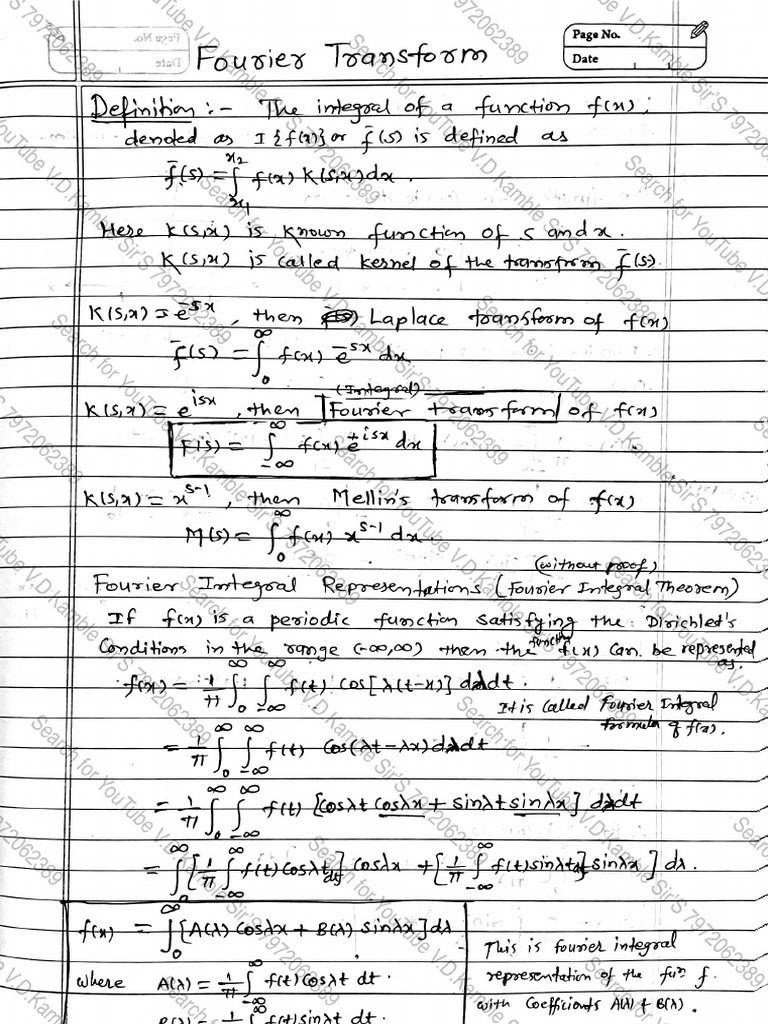 Fourier Transform
Page No.
Date
Definition :- The integral of a function f(x);
denoted as I{f(x)} or f̄(s) is defined as
f̄(s) = ∫_{x₁}^{x₂} f(x) K(s,x) dx.
Here K(s,x) is known function of s and x.
K(s,x) is called kernel of the transform f̄(s).
K(s,x) = e^{-sx}, then Laplace transform of f(x)
f̄(s) = ∫_0^∞ f(x) e^{-sx} dx
(Integral)
K(s,x) = e^{isx}, then Fourier transform of f(x)
F(s) = ∫_{-∞}^∞ f(x) e^{+isx} dx
K(s,x) = x^{s-1}, then Mellin's transform of f(x)
M(s) = ∫_0^∞ f(x) x^{s-1} dx.
(without proof)
Fourier Integral Representations (Fourier Integral Theorem)
If f(x) is a periodic function satisfying the Dirichlet's
Conditions in the range (-∞,∞) then the function f(x) can be represented
as.
f(x) = 1/π ∫_0^∞ ∫_{-∞}^∞ f(t) cos[λ(t-x)] dλdt.
It is called Fourier Integral
formula of f(x).
= 1/π ∫_0^∞ ∫_{-∞}^∞ f(t) cos(λt-λx) dλdt
= 1/π ∫_0^∞ ∫_{-∞}^∞ f(t) [cosλt cosλx + sinλt sinλx] dλdt
= ∫_0^∞ [1/π ∫_{-∞}^∞ f(t) cosλt dt] cosλx + [1/π ∫_{-∞}^∞ f(t) sinλt dt] sinλx ] dλ.
f(x) = ∫_0^∞ [A(λ) cosλx + B(λ) sinλx] dλ
This is fourier integral
where A(λ) = 1/π ∫_{-∞}^∞ f(t) cosλt dt.
representation of the fun f.
with coefficients A(λ) & B(λ).
B(λ) = 1/π ∫ f(t) sinλt dt.
Search for YouTube V.D.Kamble Sir'S 7972062389